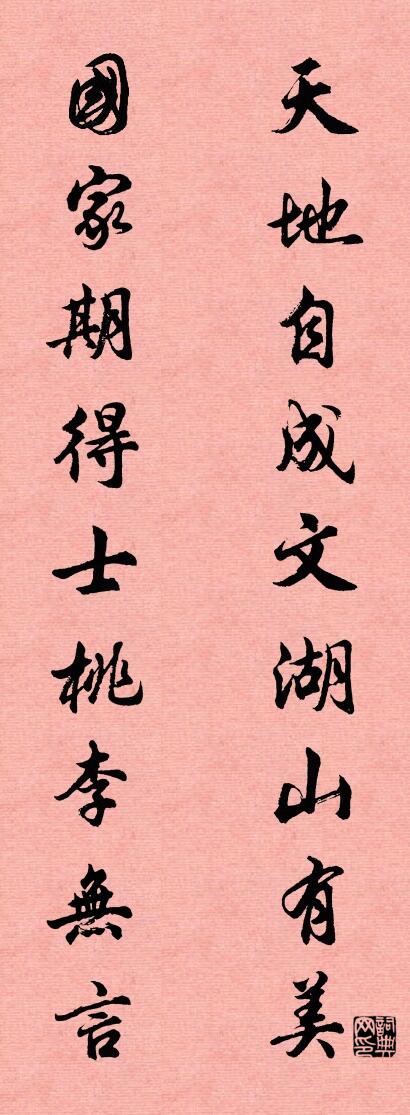 天地自成文湖山有美
國家期得士桃李無言
詞典网印